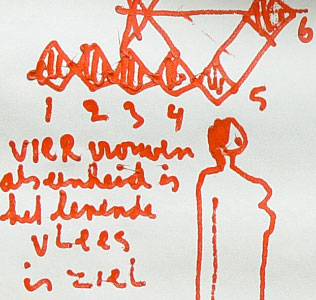 6
1 2 3 4 5
VIER vrouwen
als eenheid is
het levende
vlees
is ziel